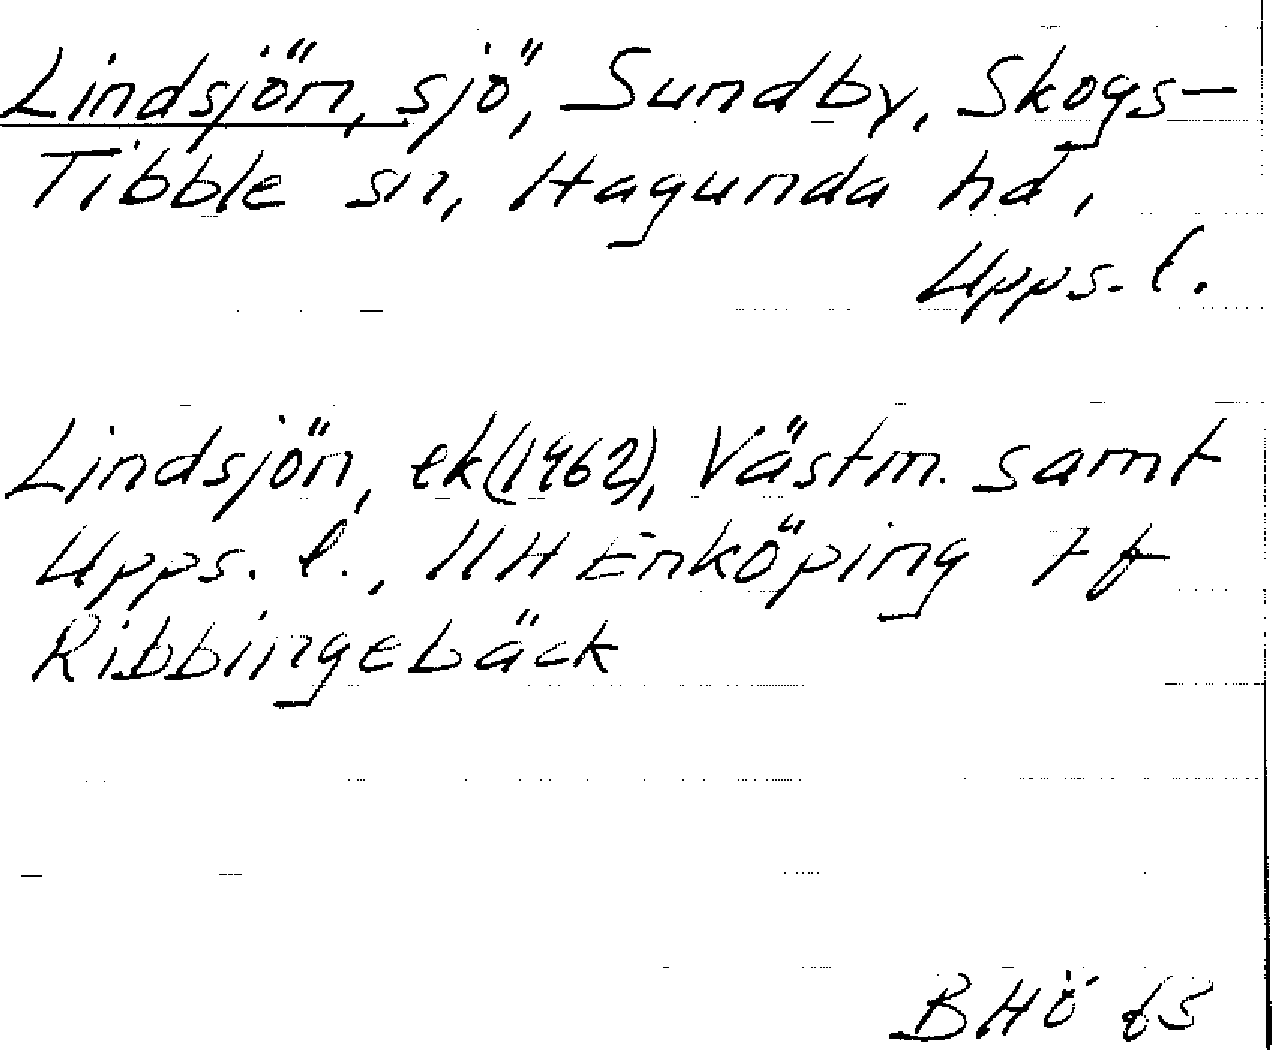 Lindsjön, sjö, Sundby, Skogs-
Tibble sn, Hagunda hd,
Upps. l.
Lindsjön, ek(1962), Västm. samt
Upps. l., 11H Enköping 7f
Ribbingebäck
BHÖ